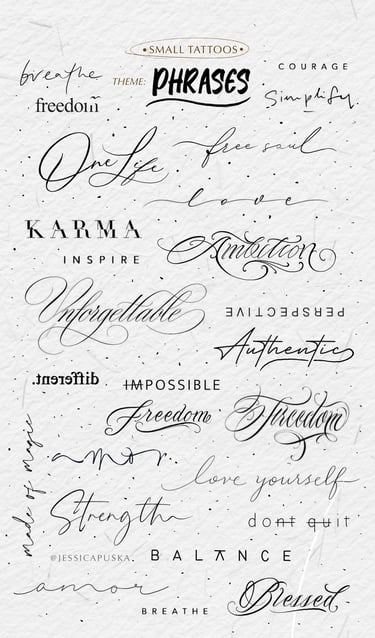 •SMALL TATTOOS•
THEME: PHRASES
breathe
COURAGE
freedom
Simplify.
One Life
free soul
love
KARMA
Ambition
INSPIRE
Unforgettable
PERSPECTIVE
Authentic
different.
IMPOSSIBLE
Freedom
Freedom
amor
made of magic
love yourself
Strength
dont quit
@JESSICAPUSKA.
BALANCE
amor
BREATHE
Blessed